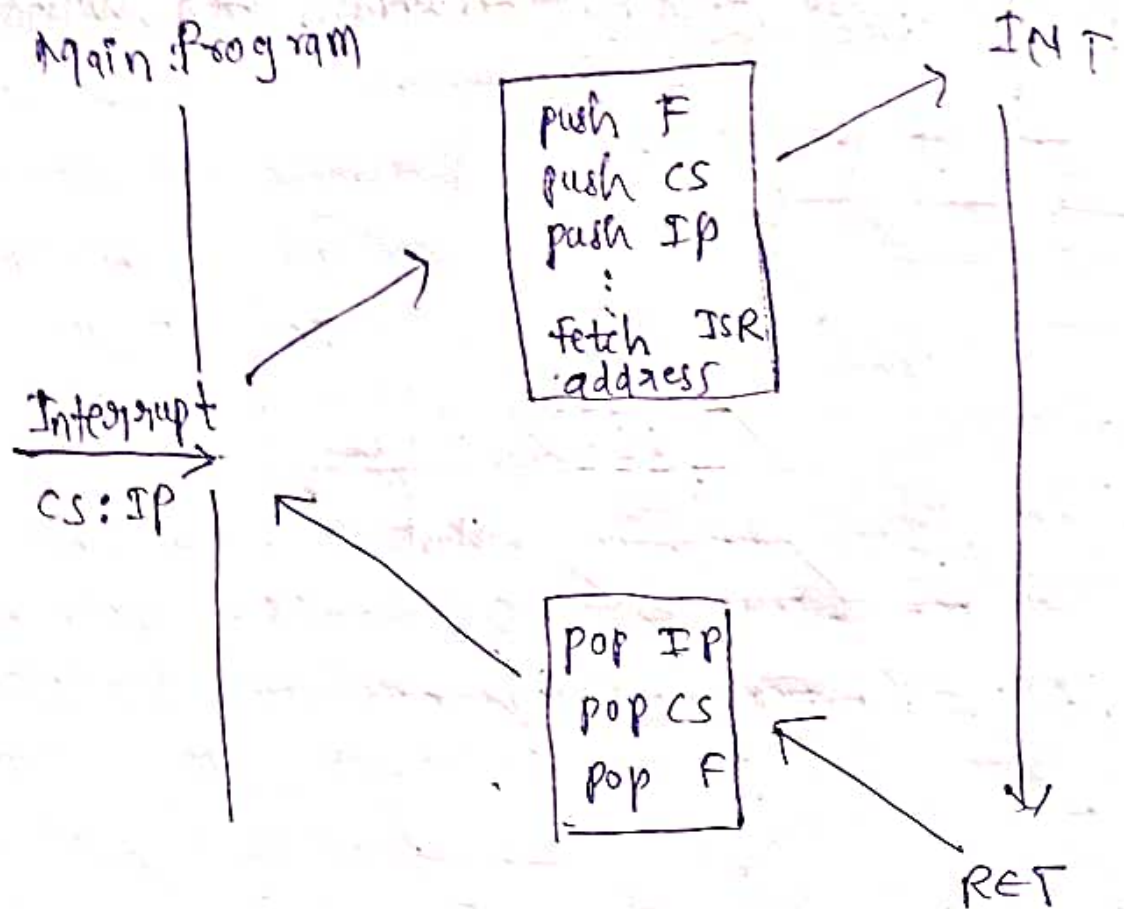 Main Program
INT
push F
push CS
push IP
:
fetch ISR
address
Interrupt
CS: IP
pop IP
pop CS
pop F
RET